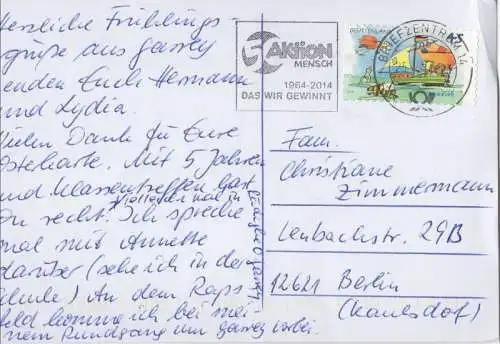 Herzliche Frühlings-
grüße aus Garrey
senden Euch Hermann
und Lydia.
Vielen Dank für Eure
Osterkarte. Mit 5 Jahren
und Klassentreffen hast
Du recht. Vielleicht mal in
Ich spreche
mal mit Annette
darüber (sehe ich in der
Schule) An dem Raps-
feld komme ich bei mei-
nem Rundgang um Garrey vorbei.
AKTION
MENSCH
1964-2014
DAS WIR GEWINNT
BRIEFZENTRUM 14
Fam.
Christiane
Zimmermann
Lenbachstr. 29B
12621 Berlin
(Kaulsdorf)